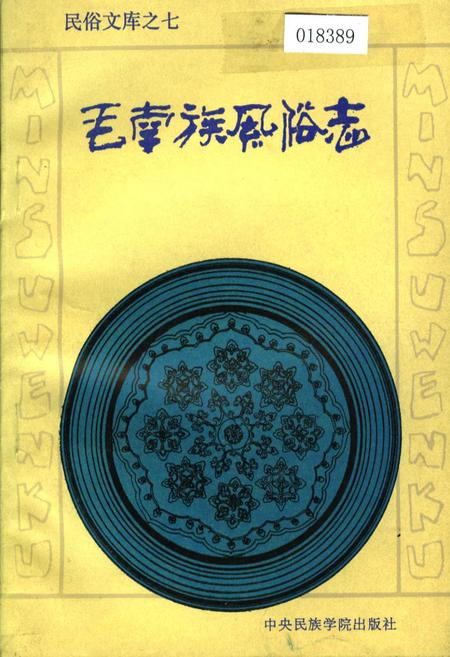 民俗文库之七
018389
毛南族风俗志
MINSUWENKU
MINSUWENKU
中央民族学院出版社